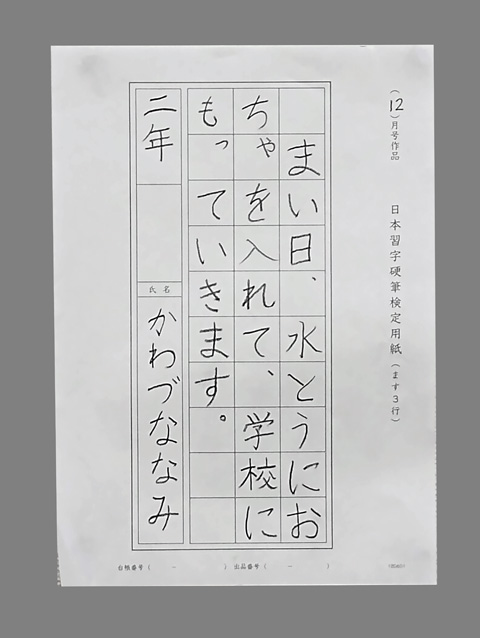 （12）月号作品　日本習字硬筆検定用紙（ます3行）
まい日、水とうにお
ちゃを入れて、学校に
もっていきます。
二年
氏名
かわづななみ
台帳番号（　－　）出品番号（　－　）